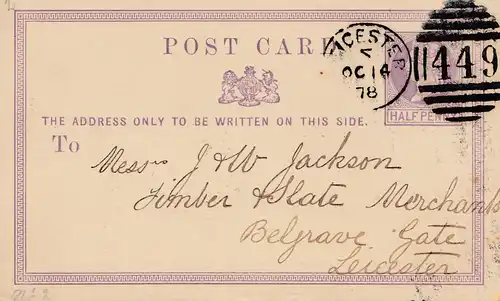 POST CARD
ICESTER
OC 14
78
449
HALF PEN
THE ADDRESS ONLY TO BE WRITTEN ON THIS SIDE.
To
Messrs J & W Jackson
Timber & Slate Merchants
Belgrave Gate
Leicester